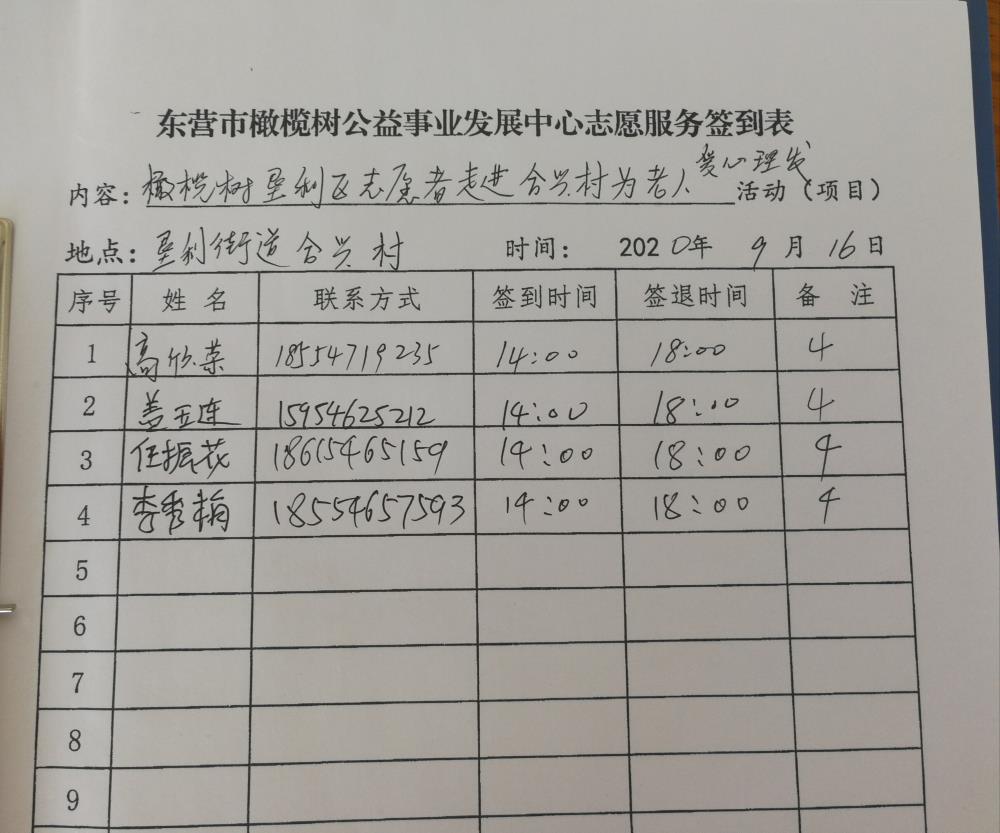 东营市橄榄树公益事业发展中心志愿服务签到表
内容：橄榄树垦利区志愿者走进合兴村为老人爱心理发活动（项目）
地点：垦利街道合兴村 时间： 2020年 9月16日
序号 姓名 联系方式 签到时间 签退时间 备注
1 高欣荣 18554719235 14:00 18:00 4
2 盖玉连 15954625212 14:00 18:00 4
3 任振花 18615465159 14:00 18:00 4
4 李秀梅 18554657593 14:00 18:00 4
5
6
7
8
9